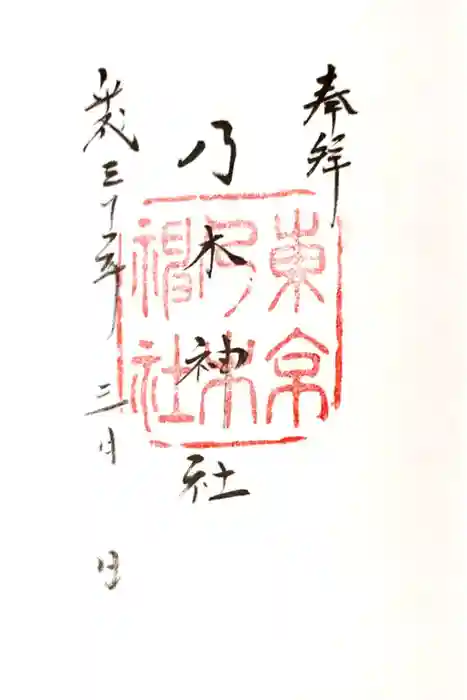 奉拝
乃木神社
平成三十年 三月 日
東京
乃木
神社